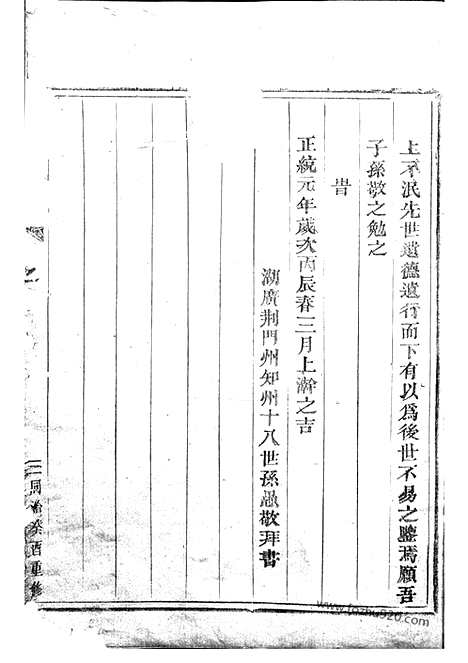 上不泯先世遺德遺行而下有以爲後世不易之鑒焉願吾
子孫敬之勉之
旹
正統元年歲次丙辰春三月上澣之吉
湖廣荆門州知州十八世孫愚敬拜書
同治癸酉重修